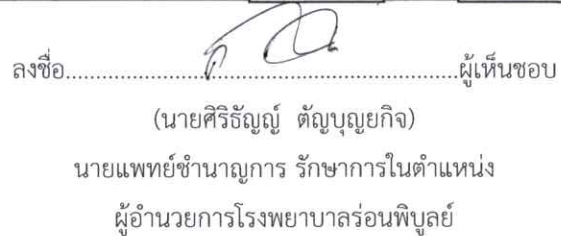 ลงชื่อ.......................................................ผู้เห็นชอบ
(นายศิริธัญญ์ ตัญบุญยกิจ)
นายแพทย์ชำนาญการ รักษาการในตำแหน่ง
ผู้อำนวยการโรงพยาบาลร่อนพิบูลย์